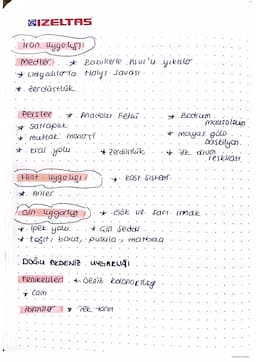 İZELTAŞ
İran Uygarlığı
Medler → Babillerle Asur'u yıktılar
★ Lidyalılarla Halys Savaşı
★ Zerdüştlük
Persler ★ Anadolu Fethi ★ Bodrum
★ Satraplık
★ Mutlak monarşi
★ Kral yolu ★ Zerdüştlük ★ İlk
Hint Uygarlığı → Kast sistemi
★ Ariler
Çin Uygarlığı → Gök ve sarı ırmak
★ İpek yolu ★ Çin Seddi
★ Kağıt, barut, pusula, matbaa
DOĞU AKDENİZ UYGARLIĞI
Fenikeliler ← Deniz
★ Cam
İbraniler → Tek tanrı